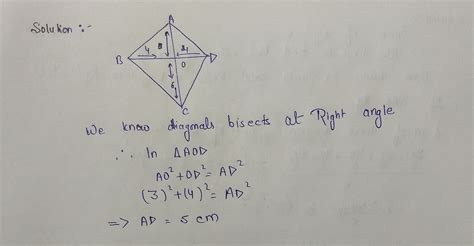 Solution :-
A
B
4
O
D
C
We know diagonals bisects at Right angle
∴ In △AOD
AO² + OD² = AD²
(3)² + (4)² = AD²
=> AD = 5 cm